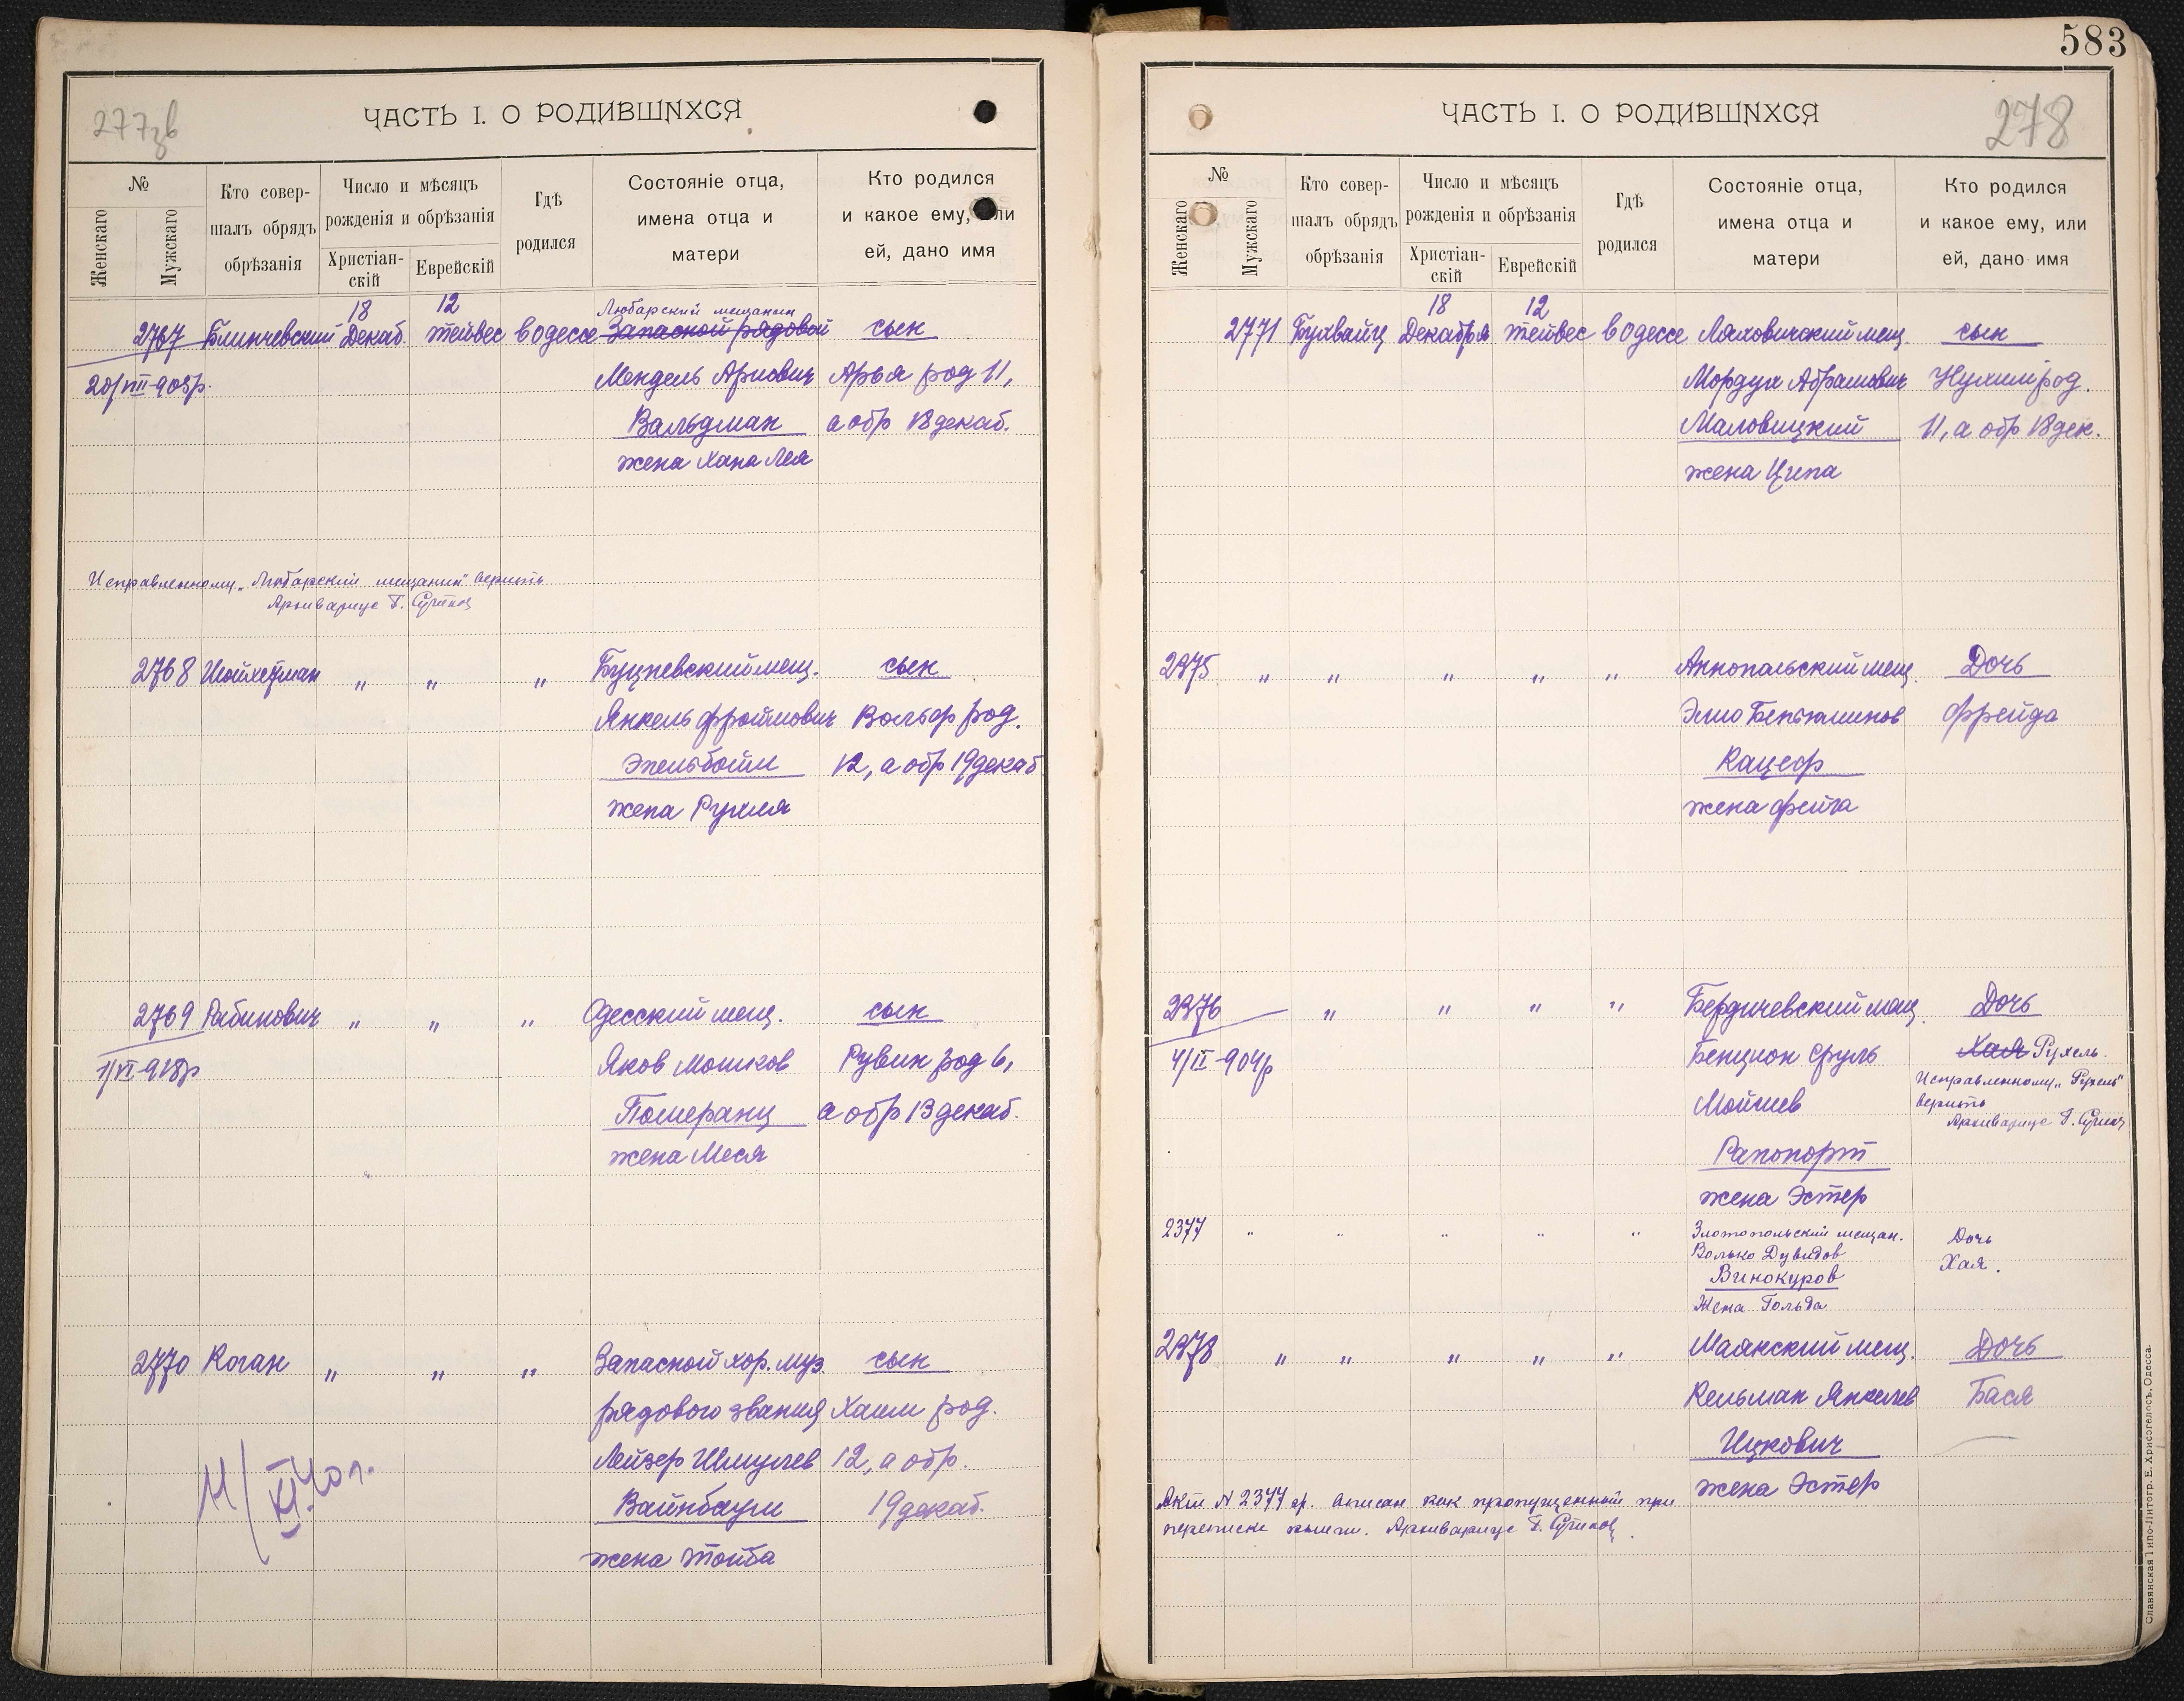 277зв
ЧАСТЬ I. О РОДИВШИХСЯ
№
Женскаго
Мужскаго
Кто совер-
шалъ обрядъ
обрѣзанія
Число и мѣсяцъ
рожденія и обрѣзанія
Христіан-
скій
Еврейскій
Гдѣ
родился
Состояніе отца,
имена отца и
матери
Кто родился
и какое ему, или
ей, дано имя
18 12 Любарский мещанин
2767 Блинчевский Декаб. тейвес в Одессе Запасной рядовой сын
20/VIII-903р. Мендель Ариович Арья род 11,
Вальдман а обр 18 декаб.
жена Хана Лея
Исправленному „Любарский мещанин" верить
Архивариус
2768 Шойхетман " " " Буцневский мещ. сын
Янкель Фроймович Вольф род.
Эпельбойм 12, а обр 19 декаб
жена Рухля
2769 Рабинович " " " Одесский мещ. сын
1/VI-918р Яков Мошков Рувин род 6,
Померанц а обр 13 декаб.
жена Меся
2770 Коган " " " Запасной хор. муз. сын
рядового звания Хаим род.
Лейзер Шмулев 12, а обр.
Вайнбаум 19 декаб.
жена Тойба
11/XI 40 г.
583
278
ЧАСТЬ I. О РОДИВШИХСЯ
№
Женскаго
Мужскаго
Кто совер-
шалъ обрядъ
обрѣзанія
Число и мѣсяцъ
рожденія и обрѣзанія
Христіан-
скій
Еврейскій
Гдѣ
родился
Состояніе отца,
имена отца и
матери
Кто родился
и какое ему, или
ей, дано имя
18 12
2771 Бухвайц Декабря тейвес в Одессе Ляховичский мещ. сын
Мордух Абрамович Нухим род.
Маловицкий 11, а обр 18 дек.
жена Ципа
2375 " " " " " Аннопольский мещ. Дочь
Элио Беньяминов Фрейда
Кацеф
жена Фейга
2376 " " " " Бердичевский мещ. Дочь
4/II-904р Бенцион Сруль Хая Рухель.
Мойшев Исправленному „Рухель"
верить
Архивариус
Рапопорт
жена Эстер
2377 " " " " " Златопольский мещан. Дочь
Волько Дувидов Хая.
Винокуров
Жена Гольда
2378 " " " " " Маякский мещ. Дочь
Кельман Янкелев Бася
Ицкович
жена Эстер
Акт № 2377 вписан как пропущенный при
переписке книги. Архивариус
Славянская Типо-Литогр. Е. Хрисогелосъ, Одесса.